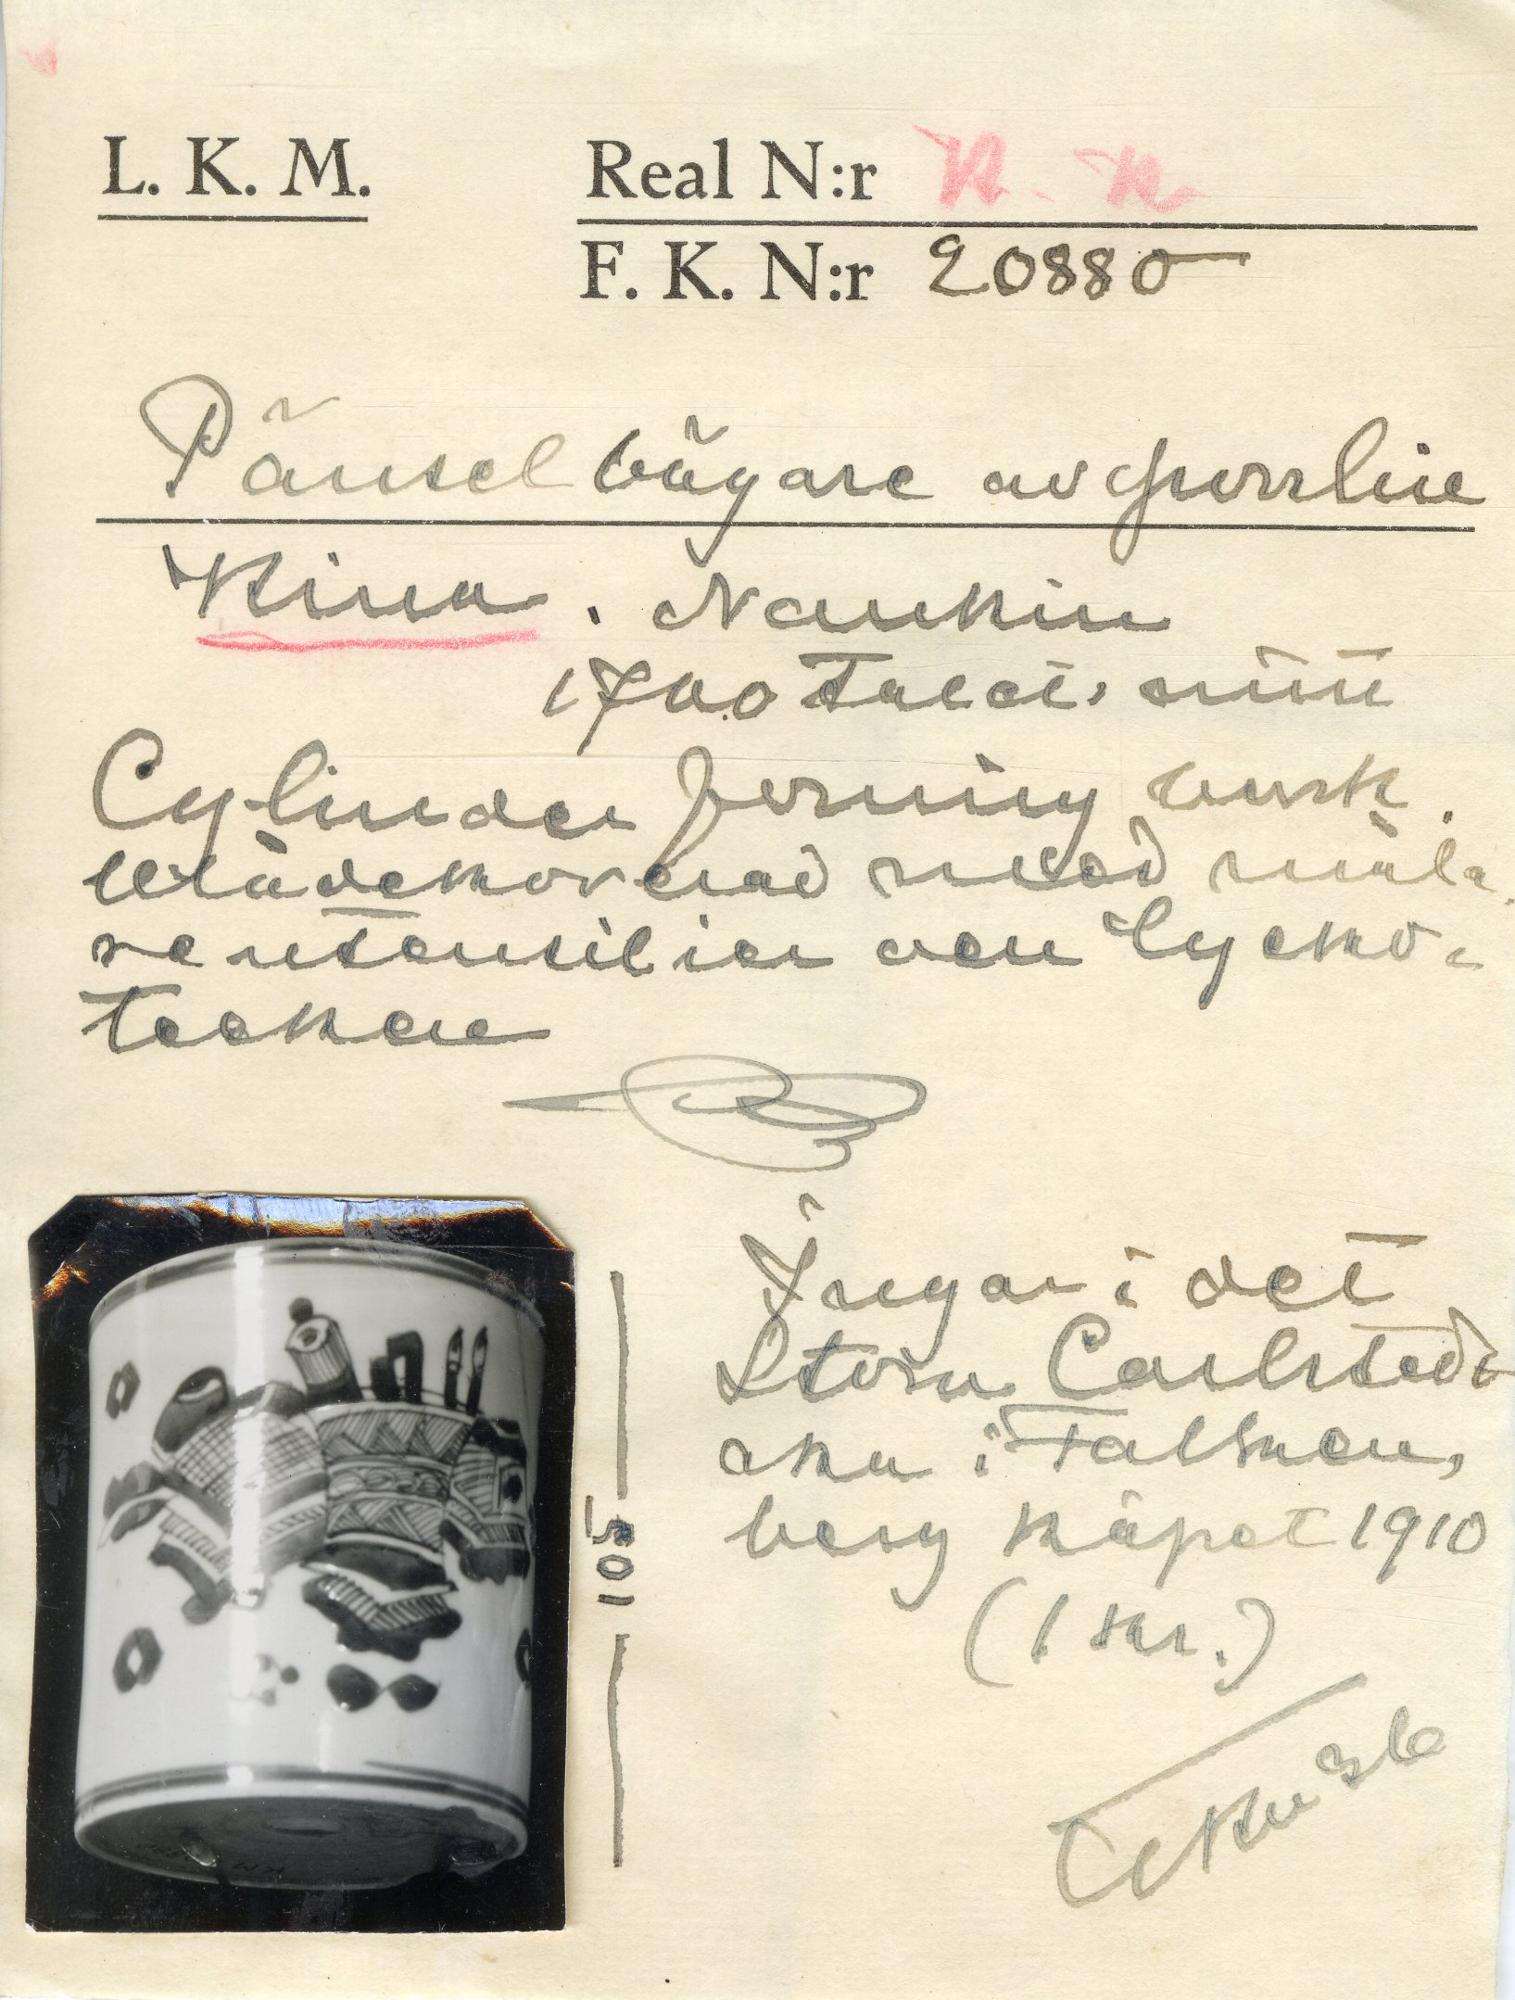 L. K. M.
Real N:r K. K.
F. K. N:r 20880
Pänselbägare av porslin
Kina. Nankin
1700 talets mitt
Cylinderforming burk.
blådekorerad med måla-
reutensilier och lycko-
tecken
Ingår i det
Stora Carlstedt
ska i Falken,
berg köpet 1910
(1 kr.)
105